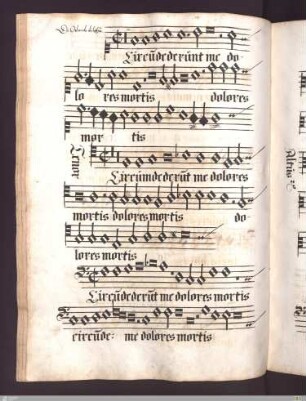 Circũdederũnt me do-
lo res mortis dolores
mor tis
Tenor
Circũmdederũt me dolores
mortis dolores mortis do
lores mortis
Circũdederũt me dolores mortis
circũde: me dolores mortis
Altus 2us